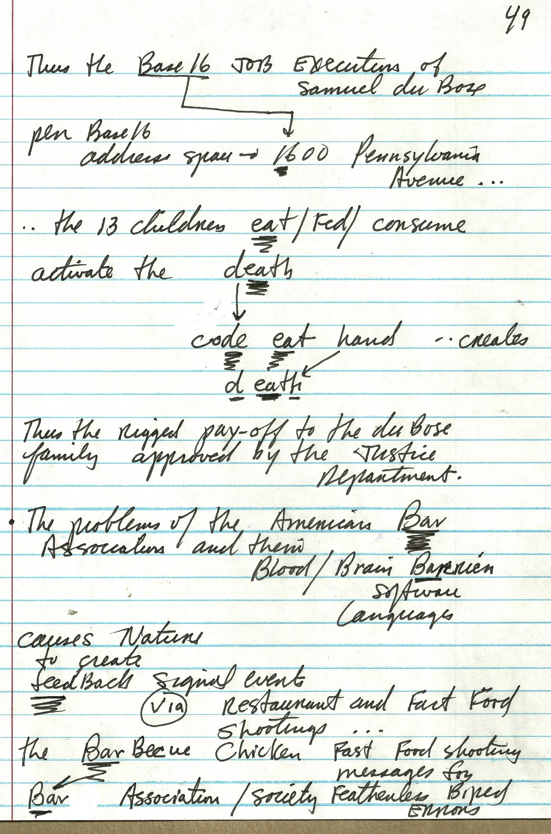 49
Thus the Base 16 JOB Execution of
Samuel du Bose
pen Base 16
address span → 1600 Pennsylvania
Avenue ...
.. the 13 children eat/Fed/ consume
activate the death
code eat hand .. creates
d eath
Thus the rigged pay-off to the du Bose
family approved by the Justice
Department.
• The problems of the American Bar
Association and their
Blood/Brain Barrier
software
languages
causes Nature
to create
feedBack signal events
Via Restaurant and Fast Food
shootings ...
the Bar Becue Chicken Fast Food shooting
messages for
Bar Association/society Featherless Biped
Errors